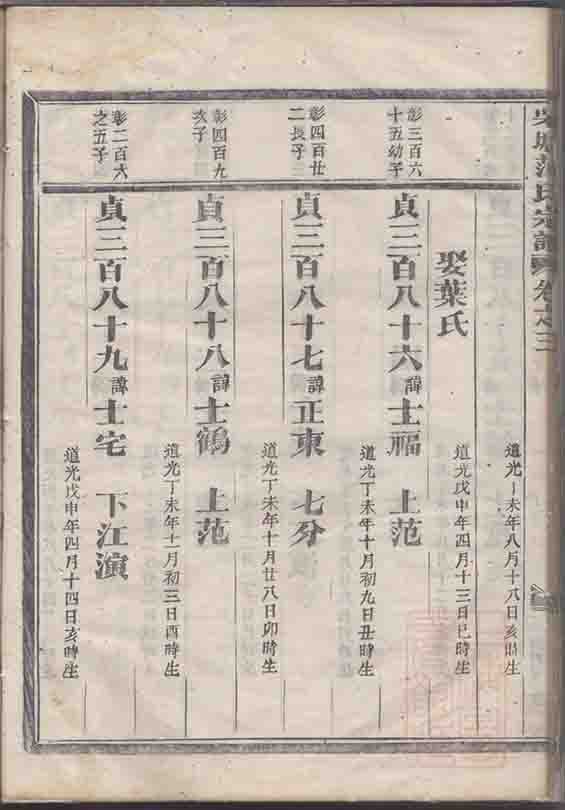 吳塘范氏宗譜 卷之三
道光丁未年八月十八日亥時生
娶葉氏
道光戊申年四月十三日巳時生
彰三百六
十五幼子
貞三百八十六諱士福 上范
道光丁未年十月初九日丑時生
彰四百廿
二長子
貞三百八十七諱正東 七分
道光丁未年十月廿八日卯時生
彰四百九
次子
貞三百八十八諱士鶴 上范
道光丁未年十一月初三日酉時生
彰二百六
之五子
貞三百八十九諱士宅 下江演
道光戊申年四月十四日亥時生